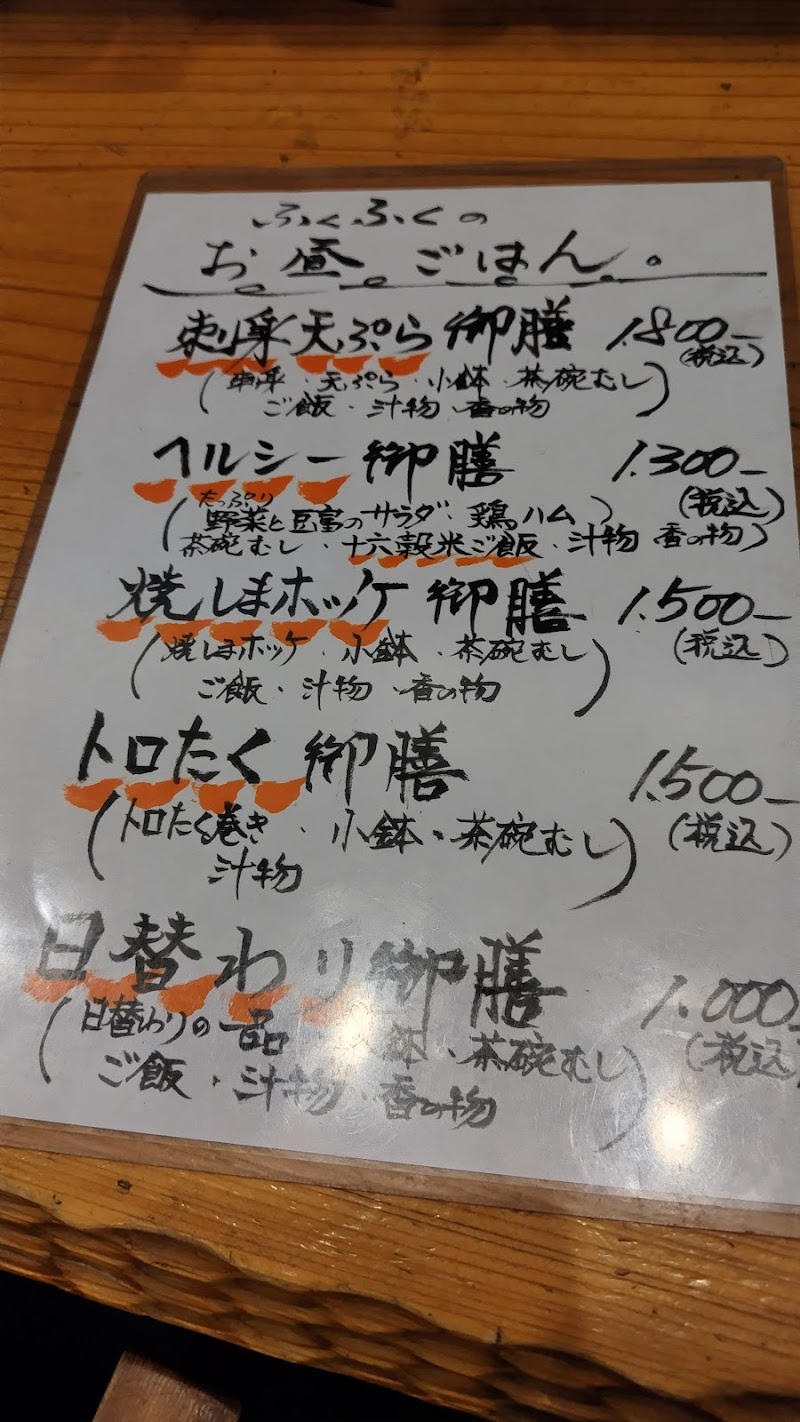 ふくふくの
お昼ごはん。
刺身天ぷら御膳 1.800-
(税込)
(刺身・天ぷら・小鉢・茶碗むし
ご飯・汁物・香の物)
ヘルシー御膳 1.300-
(税込)
たっぷり
(野菜と豆富のサラダ・鶏ハム
茶碗むし・十六穀米ご飯・汁物 香の物)
焼しまホッケ御膳 1.500-
(税込)
(焼しまホッケ・小鉢・茶碗むし
ご飯・汁物・香の物)
トロたく御膳 1.500-
(税込)
(トロたく巻き・小鉢・茶碗むし
汁物)
日替わり御膳 1.000-
(税込)
(日替わりの一品 鉢・茶碗むし
ご飯・汁物・香の物)